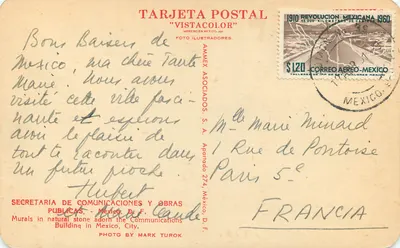 TARJETA POSTAL
"VISTACOLOR"
FOTO ILUSTRADORES.
Bons Baisers de
Mexico, ma chère Tante
Marie, nous avons
visité cette ville fasci-
nante et espérons
avoir le plaisir de
tout te raconter dans
un futur proche.
Hubert
et Claude
SECRETARIA DE COMUNICACIONES Y OBRAS
PUBLICAS - D. F.
Murals in natural stone adorn the Communications
Building in Mexico, City.
PHOTO BY MARK TUROK
AMMEX ASOCIADOS, S. A. Apartado 274, México, D. F.
1910 REVOLUCION MEXICANA 1960
$1.20 CORREO AEREO-MEXICO
MEXICO
Mlle Marie Minard
1 Rue de Pontoise
Paris 5e
FRANCIA